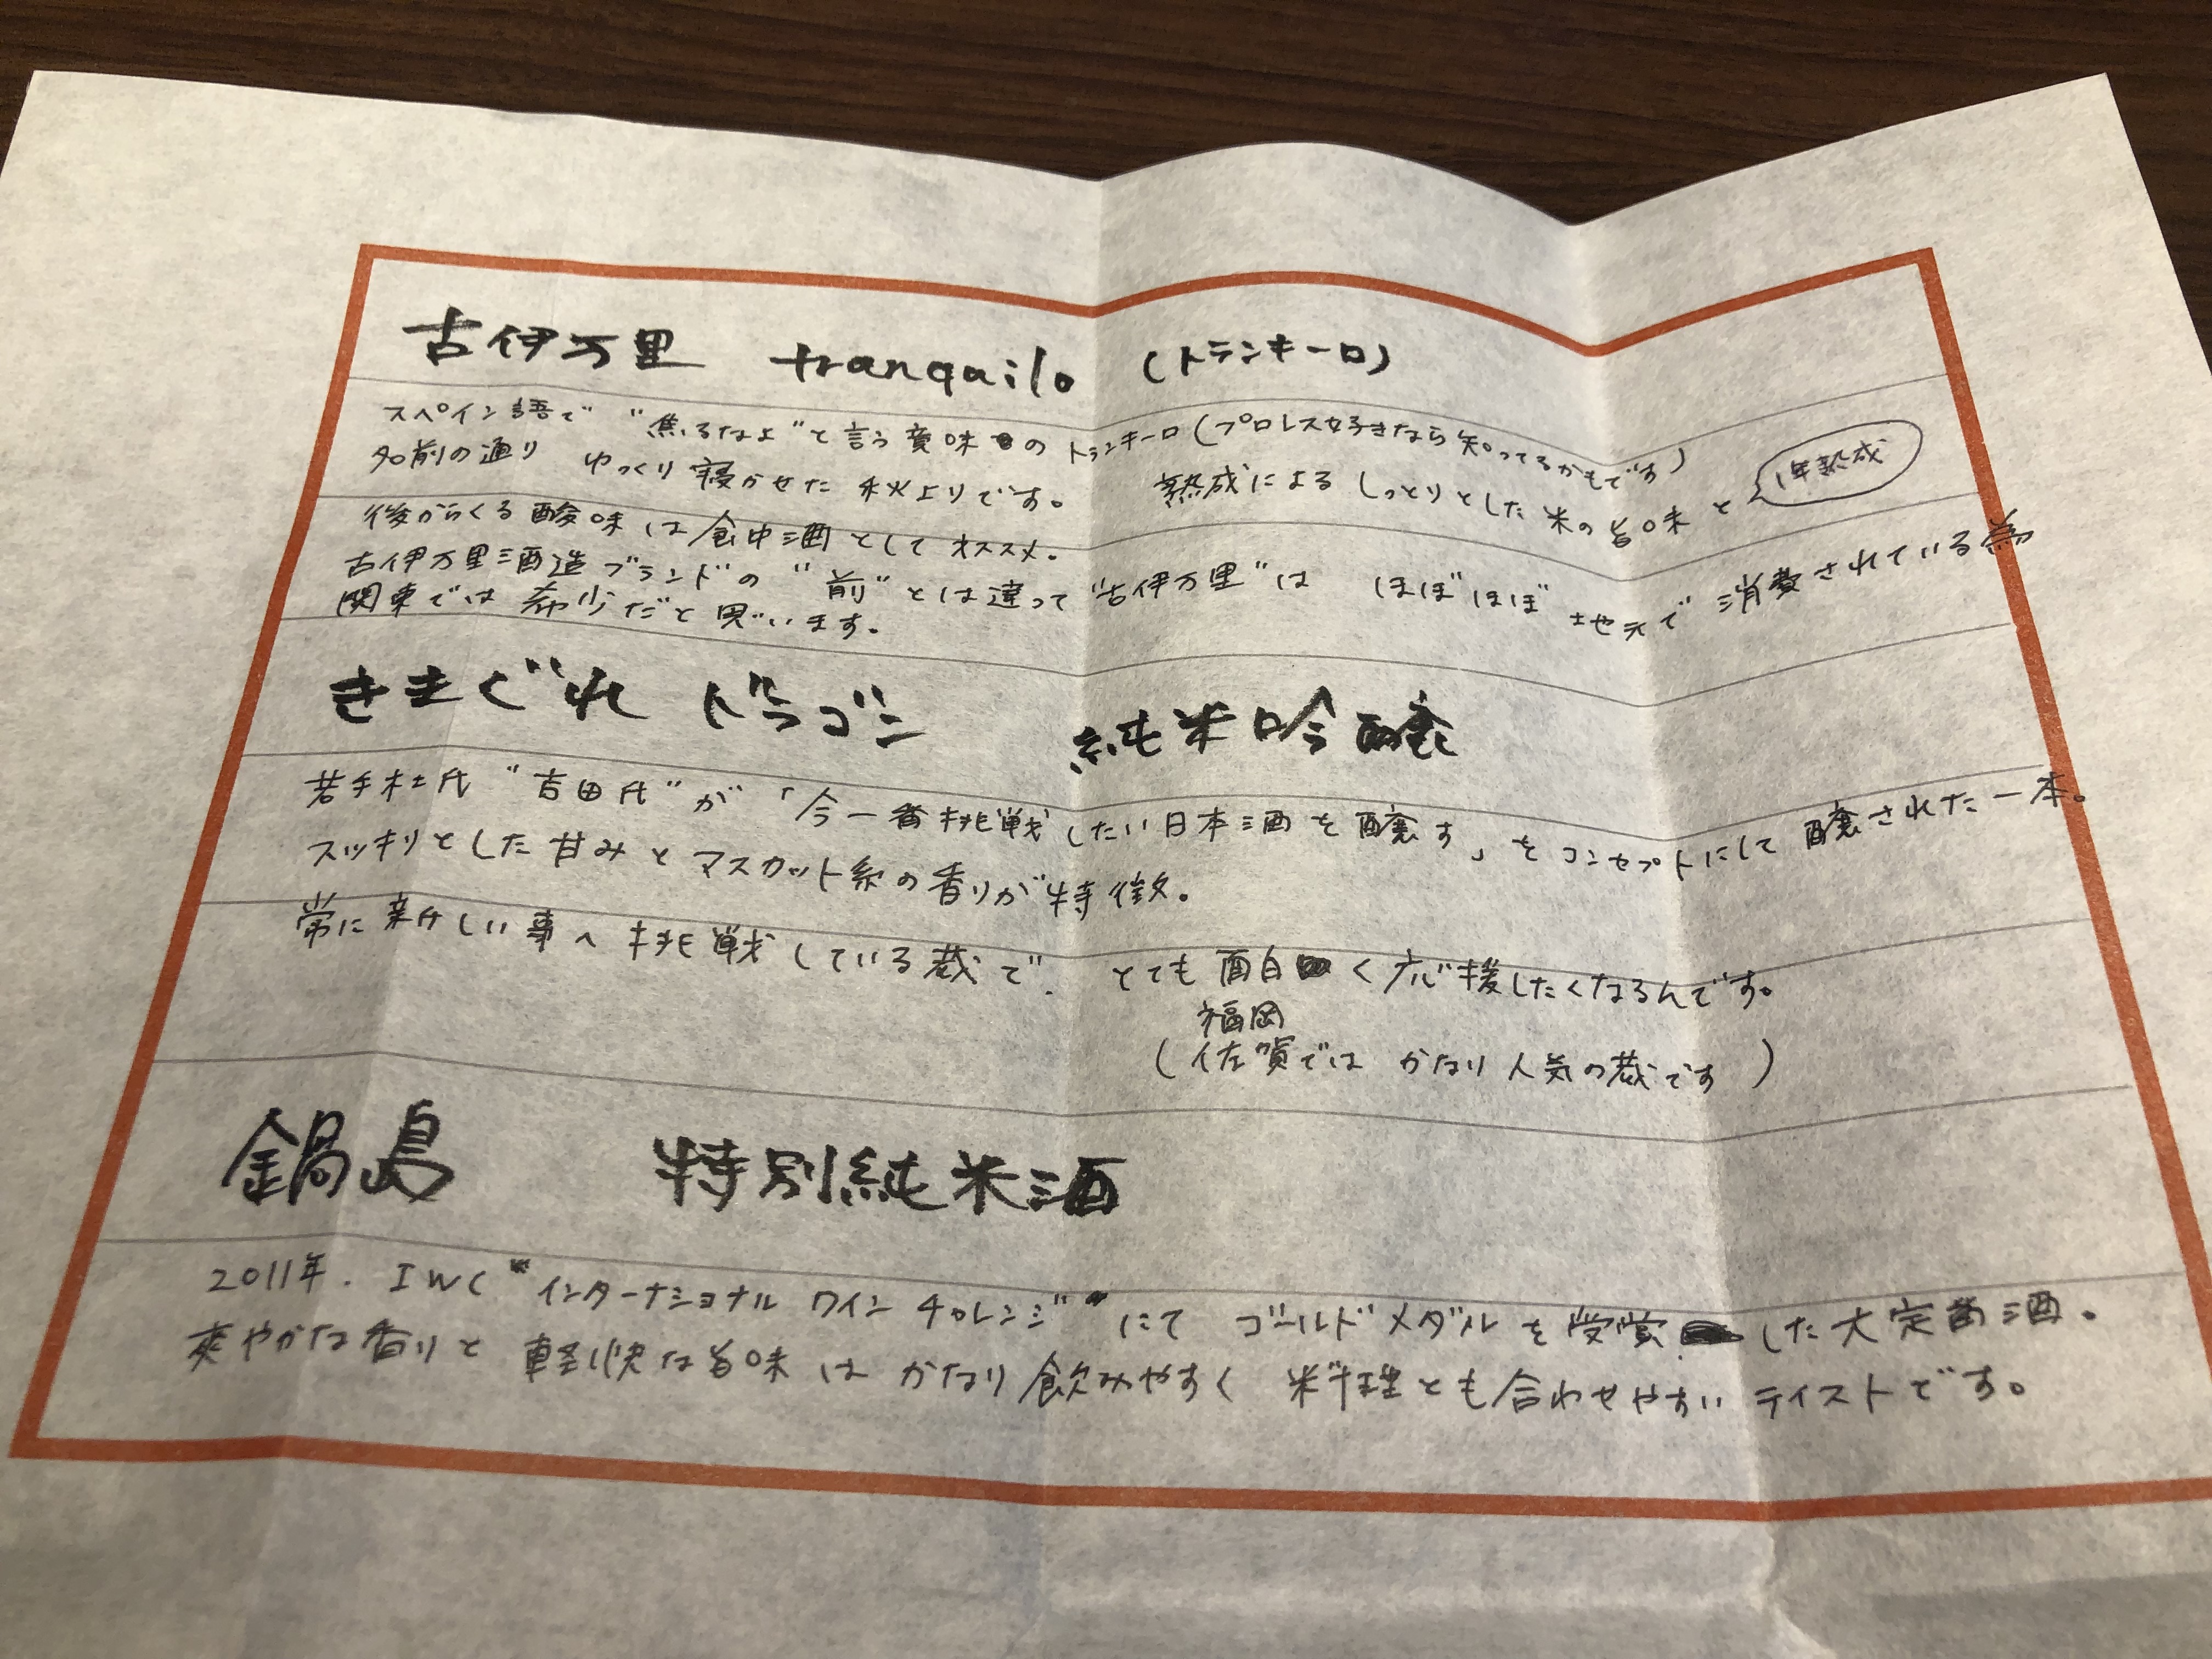 古伊万里 tranquilo (トランキーロ)
スペイン語で "焦るなよ"と言う意味のトランキーロ(プロレス好きなら知ってるかもです)
名前の通り ゆっくり寝かせた 秋上りです。 熟成による しっとりとした 米の旨味と
1年熟成
後からくる酸味は食中酒として オススメ。
古伊万里酒造ブランドの "前"とは違って"古伊万里"は ほぼほぼ 地元で 消費されている為
関東では希少だと思います。
きまぐれ ドラゴン 純米吟醸
若手杜氏 "吉田氏"が「今一番挑戦したい日本酒を醸す」をコンセプトにして 醸された一本。
スッキリとした甘みと マスカット系の香りが特徴。
常に新しい事へ 挑戦している蔵で. とても面白く応援したくなるんです。
福岡
(佐賀では かなり人気の蔵です)
鍋島 特別純米酒
2011年. IWC "インターナショナル ワイン チャレンジ" にて ゴールドメダルを受賞した大定番酒.
爽やかな香りと 軽快な旨味は かなり飲みやすく 料理とも合わせやすいテイストです。